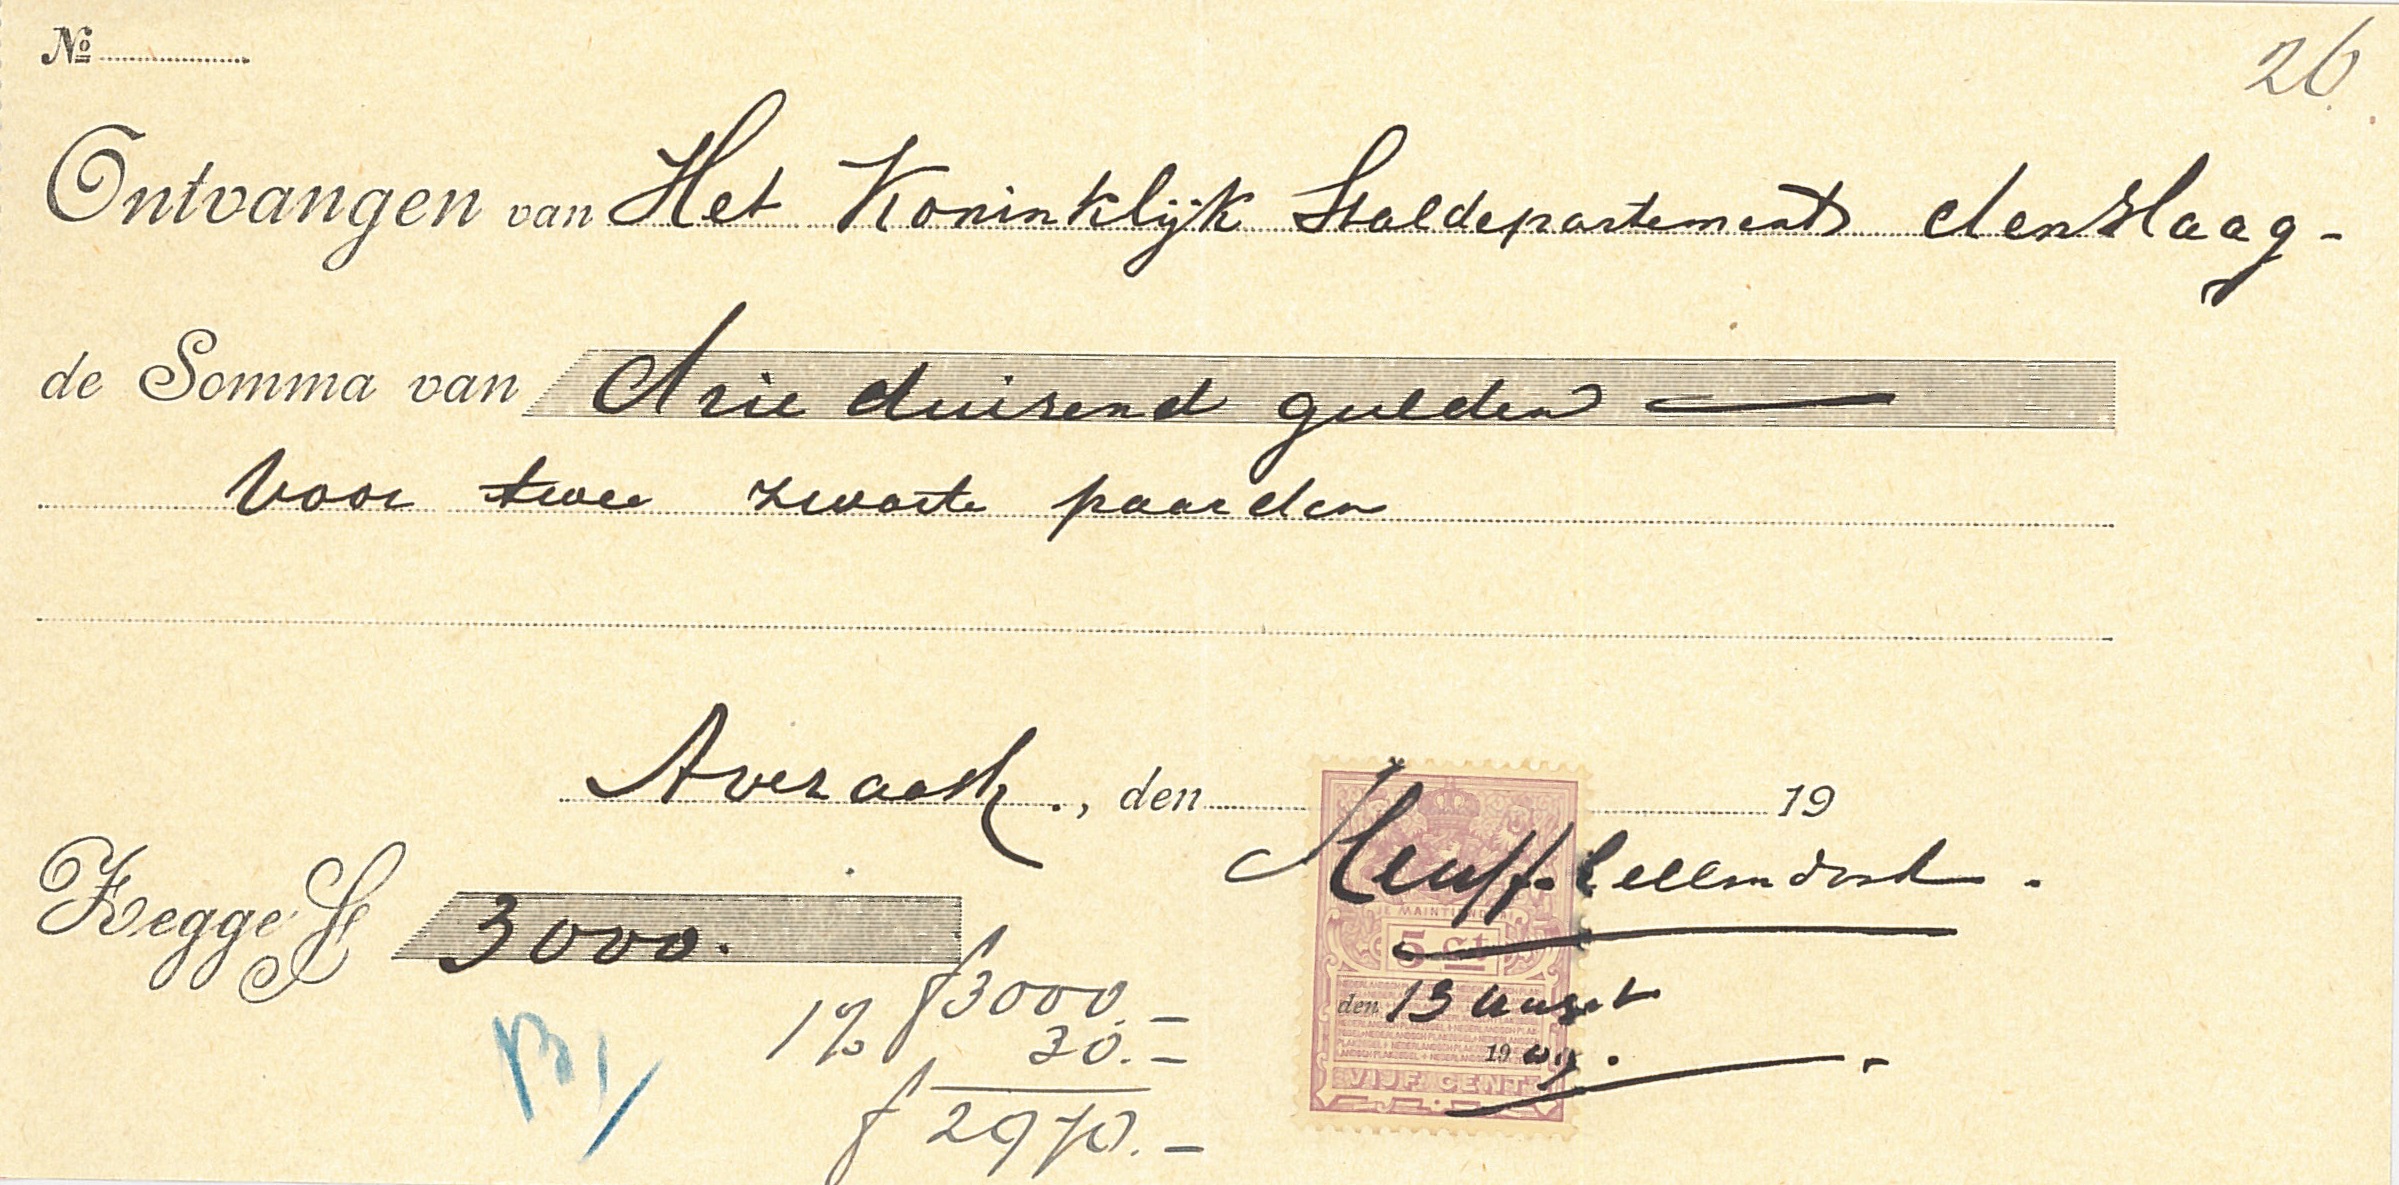 №
26
Ontvangen van Het Koninklijk Staldepartement den Haag -
de Somma van drie duisend gulden
Voor twee zwarte paarden
, den 19
JE MAINTIENDRAI
Zegge f 3000.
5 Ct
f 3000.-
1% 30.-
f 2970.-
den 13
19
VIJF CENT